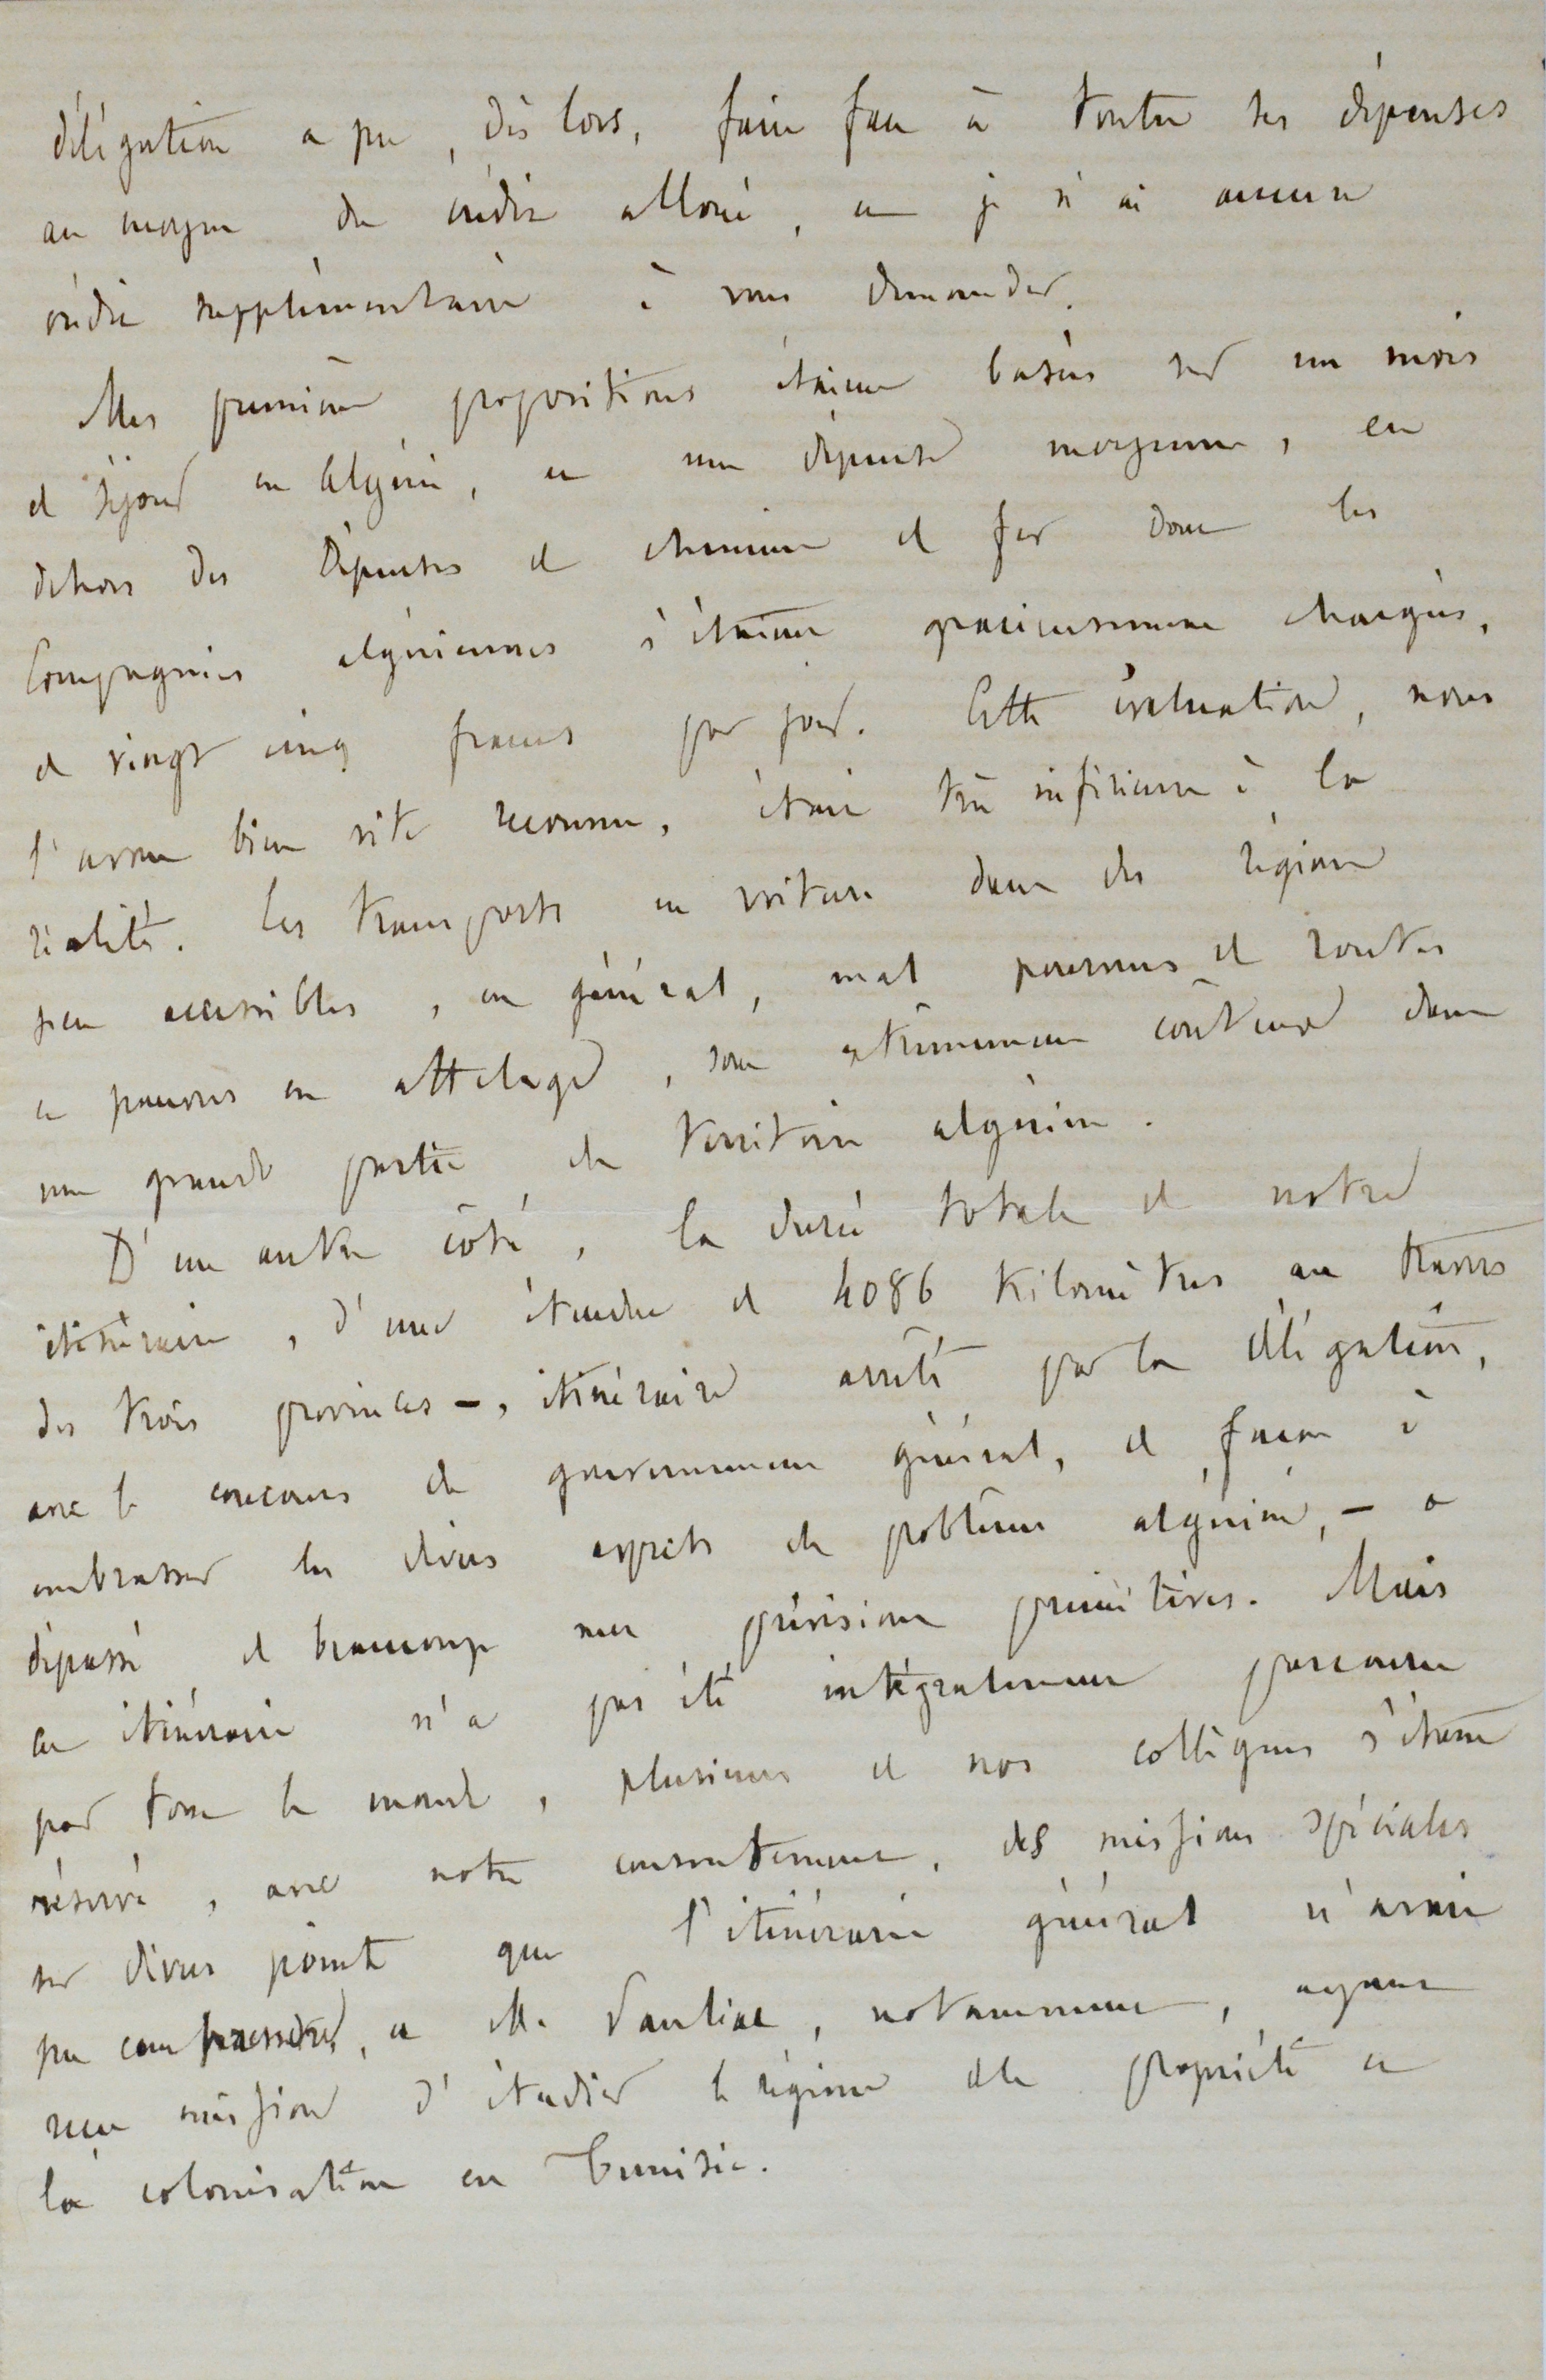 délégation a pu, dès lors, faire face à toutes ses dépenses
au moyen du crédit alloué, et je n'ai aucun
crédit supplémentaire à vous demander.
Mes premières propositions étaient basées sur un mois
de séjour en Algérie, et une dépense moyenne, en
dehors des dépenses de chemins de fer dont les
Compagnies algériennes s'étaient gracieusement chargées,
de vingt cinq francs par jour. Cette évaluation, nous
l'avons bien vite reconnu, était très inférieure à la
réalité. Les transports en voiture dans des régions
peu accessibles, en général, mal pourvues de routes
et pauvres en attelages, sont extrêmement coûteux dans
une grande partie du territoire algérien.
D'un autre côté, la durée totale de notre
itinéraire, d'une étendue de 4086 kilomètres au travers
des trois provinces -, itinéraire arrêté par la délégation,
avec le concours du gouvernement général, de façon à
embrasser les divers aspects du problème algérien, - a
dépassé de beaucoup mes prévisions primitives. Mais
cet itinéraire n'a pas été intégralement parcouru
par tout le monde, plusieurs de nos collègues s'étant
réservé, avec notre consentement, des missions spéciales
sur divers points que l'itinéraire général n'avait
pu comprendre, et M. Vautier, notamment, ayant
reçu mission d'étudier le régime de la propriété et
la colonisation en Tunisie.